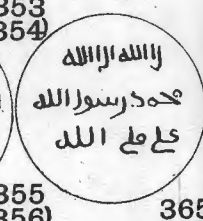 353
354)
لا الله الا الله
محمد رسول الله
علي ولي الله
355
356)
365